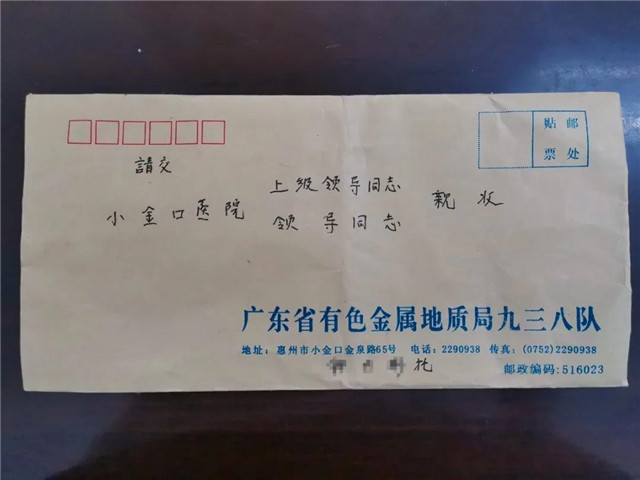 贴邮
票处
請交
上级领导同志
小金口医院
领导同志
親收
广东省有色金属地质局九三八队
地址：惠州市小金口金泉路65号 电话：2290938 传真：(0752)2290938
托
邮政编码:516023